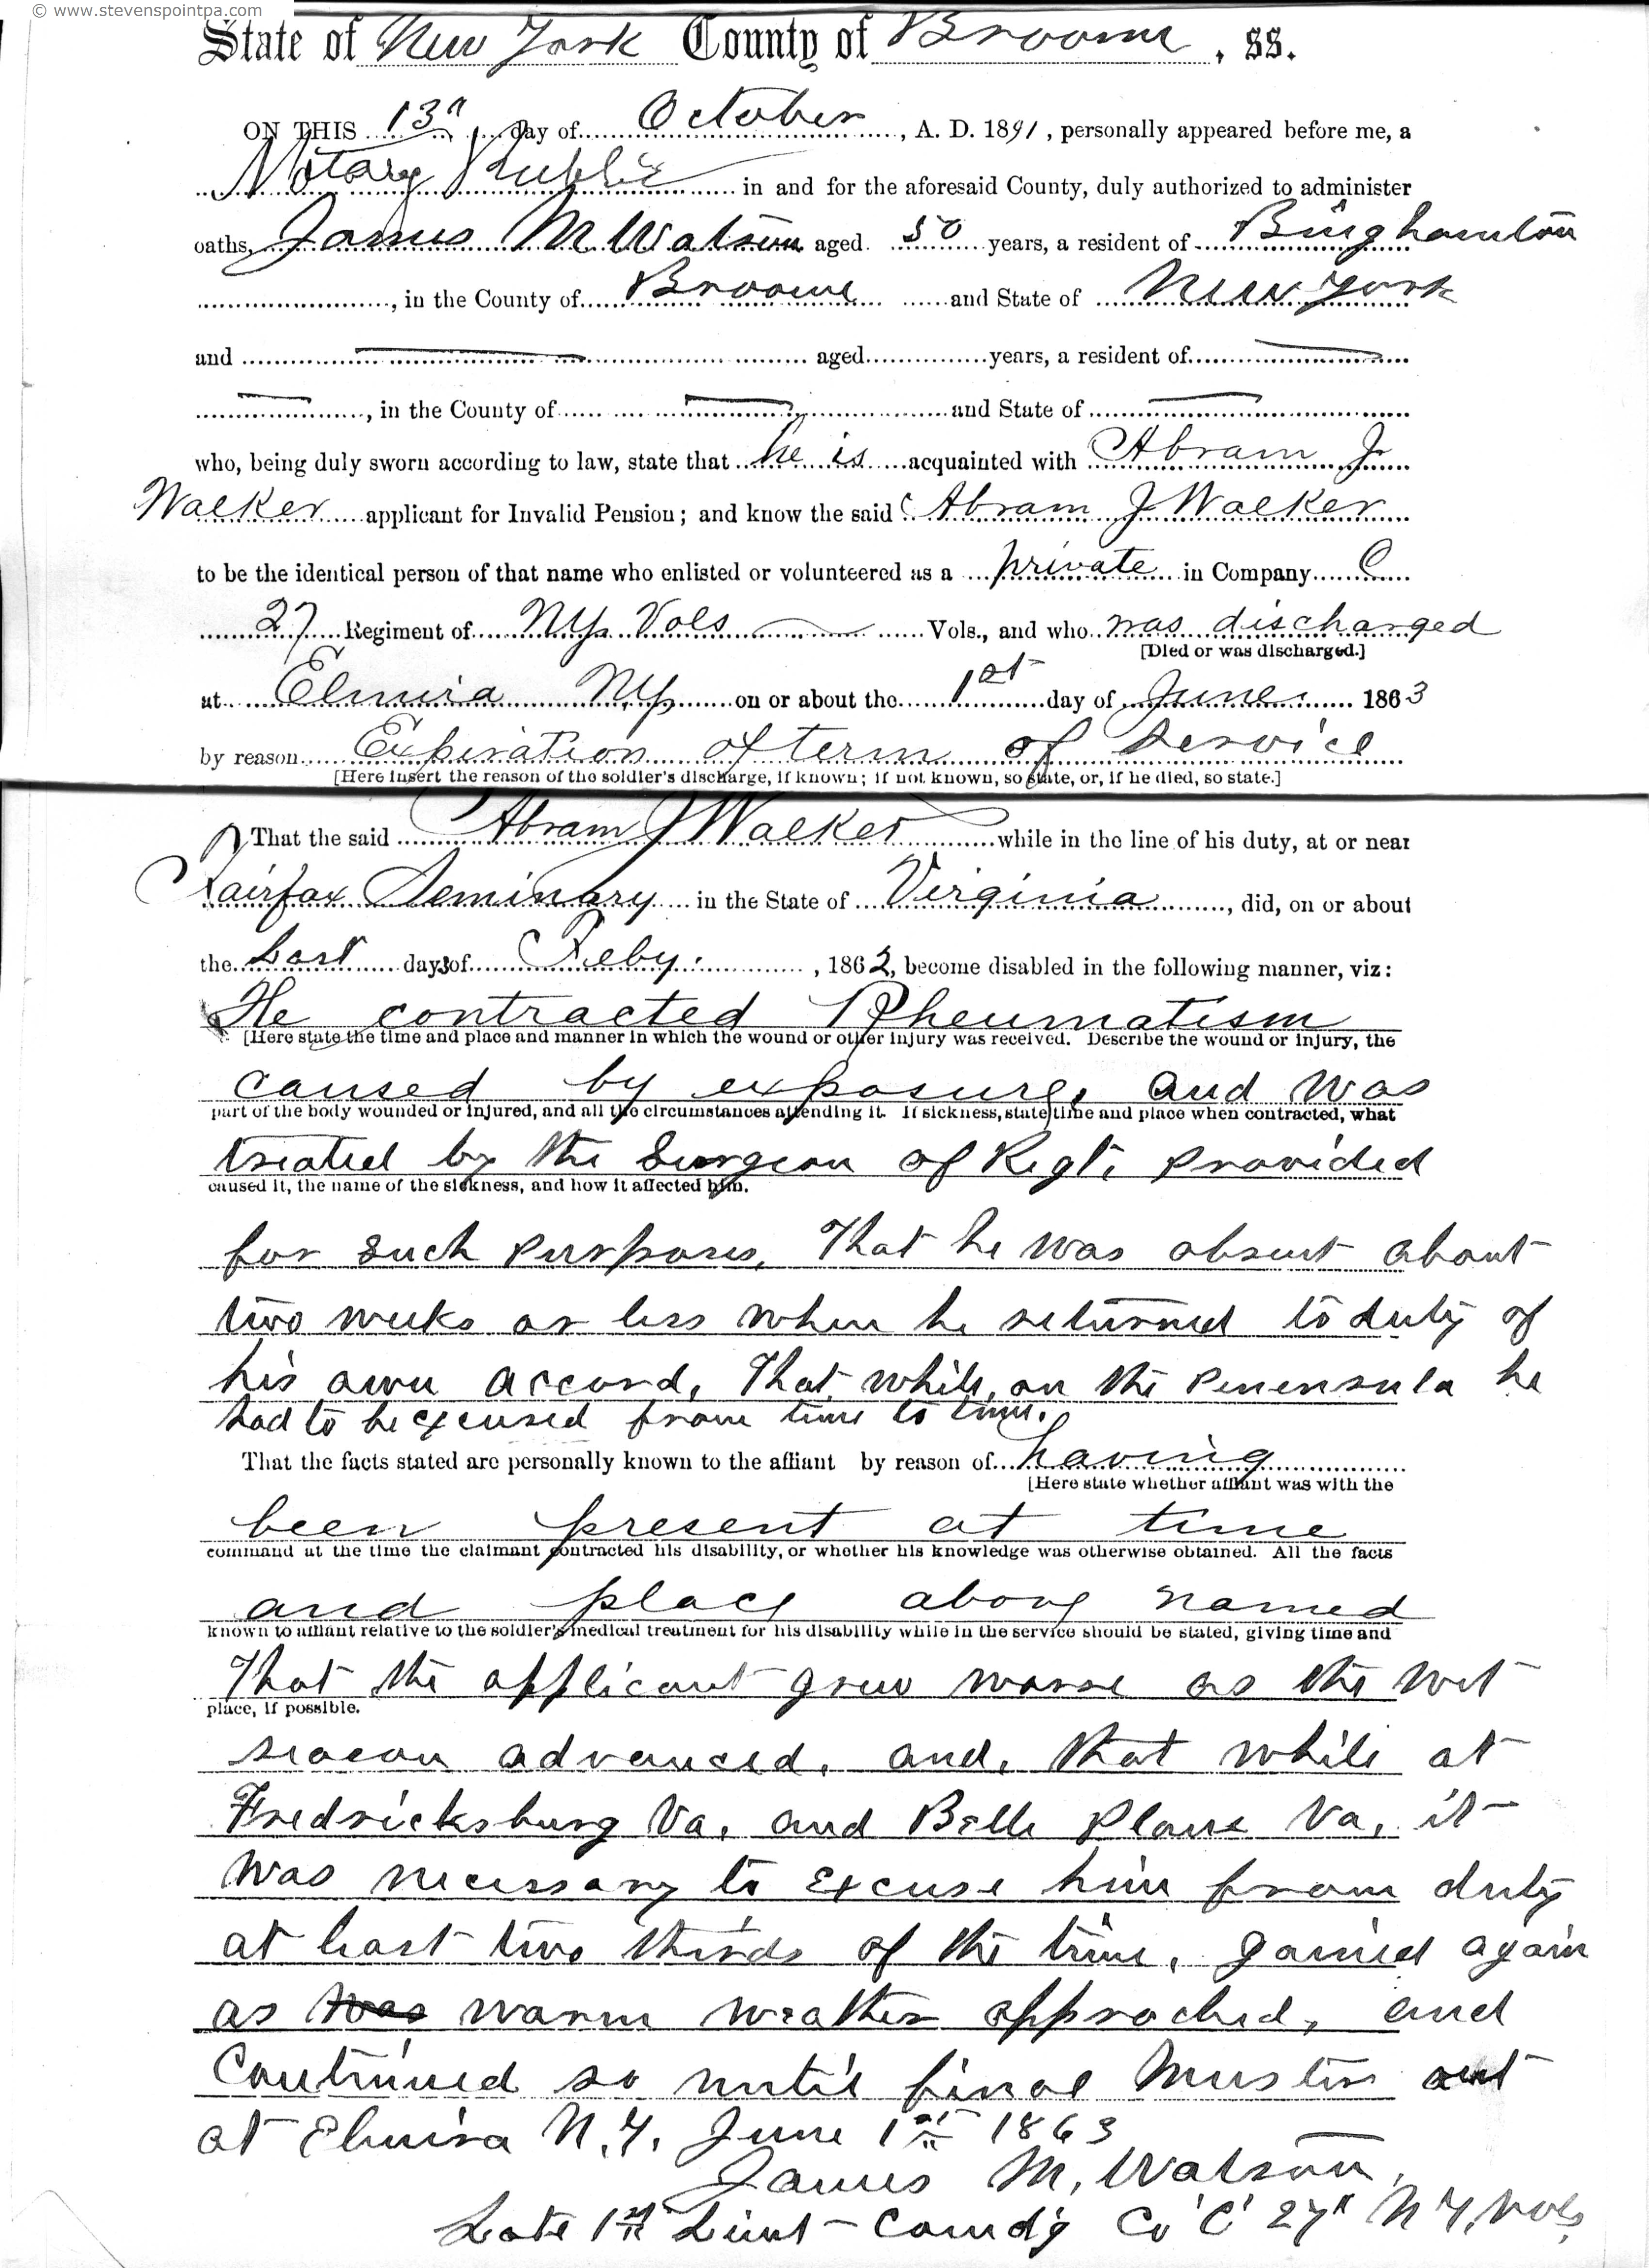 © www.stevenspointpa.com
State of New York County of Broome, ss.
ON THIS 13" day of October, A. D. 1891, personally appeared before me, a
Notary Public in and for the aforesaid County, duly authorized to administer
oaths, James M Watson aged 50 years, a resident of Binghamton
, in the County of Broome and State of New York
and aged years, a resident of
, in the County of and State of
who, being duly sworn according to law, state that he is acquainted with Abram J
Walker applicant for Invalid Pension; and know the said Abram J Walker
to be the identical person of that name who enlisted or volunteered as a private in Company C
27 Regiment of NY Vols Vols., and who was discharged
[Died or was discharged.]
at Elmira NY on or about the 1st day of June 1863
by reason Expiration of term of service
[Here insert the reason of the soldier's discharge, if known; if not known, so state, or, if he died, so state.]
That the said Abram J Walker while in the line of his duty, at or near
Fairfax Seminary in the State of Virginia, did, on or about
the Last days of Feby. , 1862, become disabled in the following manner, viz:
He contracted Rheumatism
[Here state the time and place and manner in which the wound or other injury was received. Describe the wound or injury, the
caused by exposure, and was
part of the body wounded or injured, and all the circumstances attending it. If sickness, state time and place when contracted, what
treated by the Surgeon of Regt. provided
caused it, the name of the sickness, and how it affected him.
for such purposes, That he was absent about
two weeks or less when he returned to duty of
his own accord, That while on the Penensula he
had to be excused from time to time.
That the facts stated are personally known to the affiant by reason of having
[Here state whether affiant was with the
been present at time
command at the time the claimant contracted his disability, or whether his knowledge was otherwise obtained. All the facts
and place above named
known to affiant relative to the soldier's medical treatment for his disability while in the service should be stated, giving time and
That the applicant grew worse as the wet
place, if possible.
season advanced, and, that while at
Fredricksburg Va, and Belle Plane Va, it
was necessary to excuse him from duty
at least two thirds of the time, gained again
as was warm weather approched, and
Continued so until final Muster out
at Elmira N.Y. June 1st 1863
James M. Watson,
Late 1st Lieut - Comd'g Co 'C' 27" N Y, Vols,